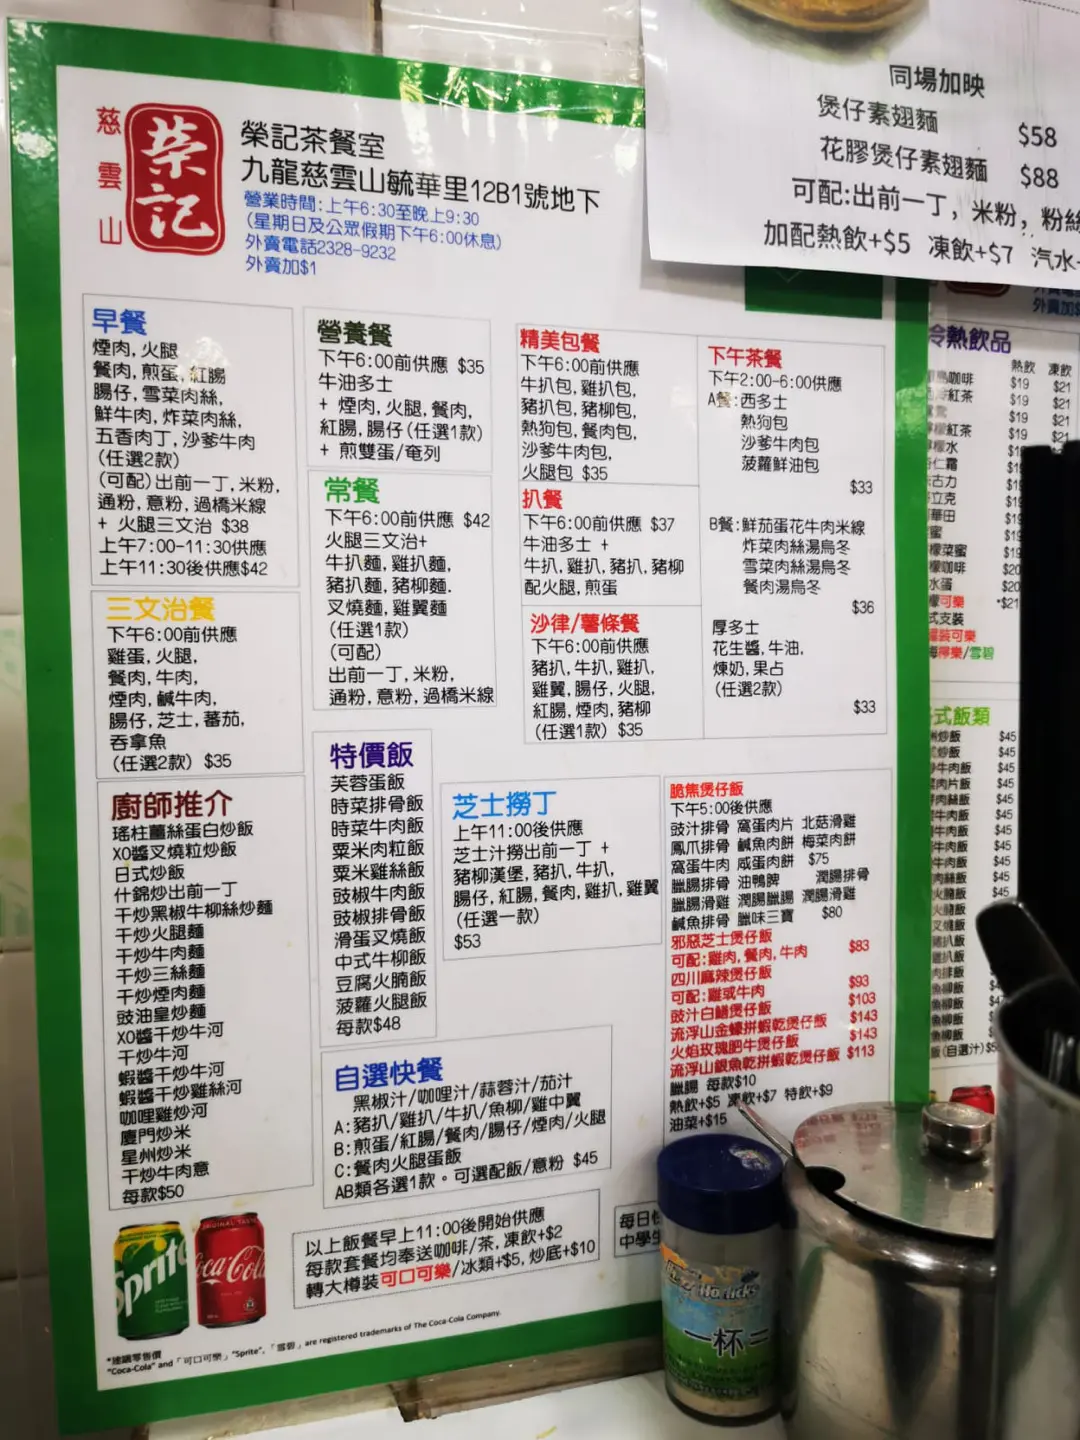 同場加映
煲仔素翅麵 $58
花膠煲仔素翅麵 $88
可配:出前一丁, 米粉, 粉絲
加配熱飲+$5 凍飲+$7 汽水
慈雲山
榮記
榮記茶餐室
九龍慈雲山毓華里12B1號地下
營業時間:上午6:30至晚上9:30
(星期日及公眾假期下午6:00休息)
外賣電話2328-9232
外賣加$1
早餐
煙肉, 火腿
餐肉, 煎蛋, 紅腸
腸仔, 雪菜肉絲,
鮮牛肉, 炸菜肉絲,
五香肉丁, 沙爹牛肉
(任選2款)
(可配)出前一丁, 米粉,
通粉, 意粉, 過橋米線
+ 火腿三文治 $38
上午7:00-11:30供應
上午11:30後供應$42
三文治餐
下午6:00前供應
雞蛋, 火腿,
餐肉, 牛肉,
煙肉, 鹹牛肉,
腸仔, 芝士, 蕃茄,
吞拿魚
(任選2款) $35
廚師推介
瑤柱薑絲蛋白炒飯
XO醬叉燒粒炒飯
日式炒飯
什錦炒出前一丁
干炒黑椒牛柳絲炒麵
干炒火腿麵
干炒牛肉麵
干炒三絲麵
干炒煙肉麵
豉油皇炒麵
XO醬干炒牛河
干炒牛河
蝦醬干炒牛河
蝦醬干炒雞絲河
咖哩雞炒河
廈門炒米
星州炒米
干炒牛肉意
每款$50
營養餐
下午6:00前供應 $35
牛油多士
+ 煙肉, 火腿, 餐肉,
紅腸, 腸仔(任選1款)
+ 煎雙蛋/奄列
常餐
下午6:00前供應 $42
火腿三文治+
牛扒麵, 雞扒麵,
豬扒麵, 豬柳麵.
叉燒麵, 雞翼麵
(任選1款)
(可配)
出前一丁, 米粉,
通粉, 意粉, 過橋米線
特價飯
芙蓉蛋飯
時菜排骨飯
時菜牛肉飯
粟米肉粒飯
粟米雞絲飯
豉椒牛肉飯
豉椒排骨飯
滑蛋叉燒飯
中式牛柳飯
豆腐火腩飯
菠蘿火腿飯
每款$48
精美包餐
下午6:00前供應
牛扒包, 雞扒包,
豬扒包, 豬柳包,
熱狗包, 餐肉包,
沙爹牛肉包,
火腿包 $35
扒餐
下午6:00前供應 $37
牛油多士 +
牛扒, 雞扒, 豬扒, 豬柳
配火腿, 煎蛋
沙律/薯條餐
下午6:00前供應
豬扒, 牛扒, 雞扒,
雞翼, 腸仔, 火腿,
紅腸, 煙肉, 豬柳
(任選1款) $35
下午茶餐
下午2:00-6:00供應
A餐:西多士
熱狗包
沙爹牛肉包
菠蘿鮮油包
$33
B餐:鮮茄蛋花牛肉米線
炸菜肉絲湯烏冬
雪菜肉絲湯烏冬
餐肉湯烏冬
$36
厚多士
花生醬, 牛油,
煉奶, 果占
(任選2款)
$33
芝士撈丁
上午11:00後供應
芝士汁撈出前一丁 +
豬柳漢堡, 豬扒, 牛扒,
腸仔, 紅腸, 餐肉, 雞扒, 雞翼
(任選一款)
$53
脆焦煲仔飯
下午5:00後供應
豉汁排骨 窩蛋肉片 北菇滑雞
鳳爪排骨 鹹魚肉餅 梅菜肉餅
窩蛋牛肉 咸蛋肉餅 $75
臘腸排骨 油鴨脾 潤腸排骨
臘腸滑雞 潤腸臘腸 潤腸滑雞
鹹魚排骨 臘味三寶 $80
邪惡芝士煲仔飯
可配:雞肉, 餐肉, 牛肉 $83
四川麻辣煲仔飯
可配:雞或牛肉 $93
豉汁白鱔煲仔飯 $103
流浮山金蠔拼蝦乾煲仔飯 $143
火焰玫瑰肥牛煲仔飯 $143
流浮山銀魚乾拼蝦乾煲仔飯 $113
臘腸 每款$10
熱飲+$5 凍飲+$7 特飲+$9
油菜+$15
自選快餐
黑椒汁/咖哩汁/蒜蓉汁/茄汁
A:豬扒/雞扒/牛扒/魚柳/雞中翼
B:煎蛋/紅腸/餐肉/腸仔/煙肉/火腿
C:餐肉火腿蛋飯
AB類各選1款。可選配飯/意粉 $45
以上飯餐早上11:00後開始供應
每款套餐均奉送咖啡/茶, 凍飲+$2
轉大樽裝可口可樂/冰類+$5, 炒底+$10
每日
中學
Sprite
ORIGINAL TASTE
Coca-Cola
*建議零售價
"Coca-Cola" and「可口可樂」"Sprite",「雪碧」are registered trademarks of The Coca-Cola Company.
外賣加$
冷熱飲品
熱飲 凍飲
咖啡 $19 $21
紅茶 $19 $21
$19 $21
紅茶 $19 $21
可樂 *$21
裝可樂
檸樂/雪碧
式飯類
炒飯 $45
炒飯 $45
牛肉飯 $45
肉片飯 $45
肉絲飯 $45
牛肉飯 $45
牛肉飯 $45
牛肉飯 $45
牛肉飯 $45
肉絲飯 $45
火腿飯 $45
叉燒飯
豬扒飯
雞扒飯
肉排飯
魚柳飯
魚柳飯
魚柳飯
飯(自選汁)
Horlicks
一杯